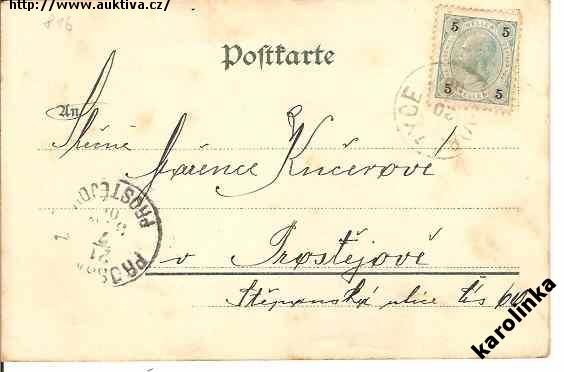 http://www.auktiva.cz/
816
Postkarte
5 5
HELLER
5 5
An
Slečně
Mařence Kučerové
v Prostějově
Štěpanská ulice čís
PROSTĚJOV
PROSS
21
karolinka